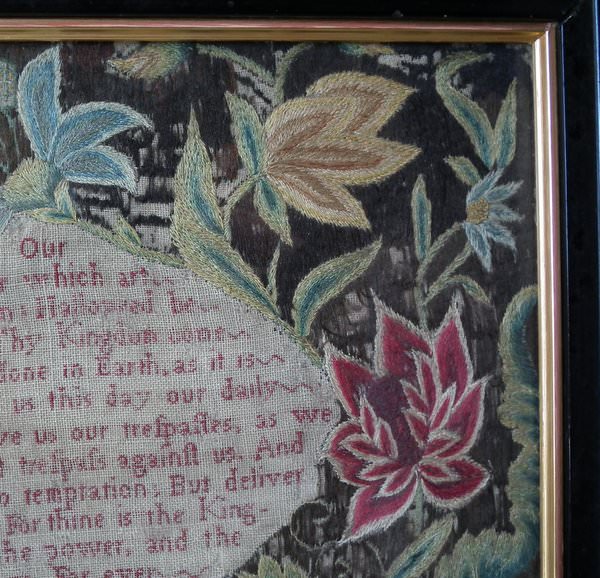 Our
which art
Hallowed be
Thy Kingdom come
done in Earth, as it is
us this day our daily
us our treſpaſſes, as we
treſpaſs againſt us. And
temptation; But deliver
For thine is the King-
the power, and the
For ever